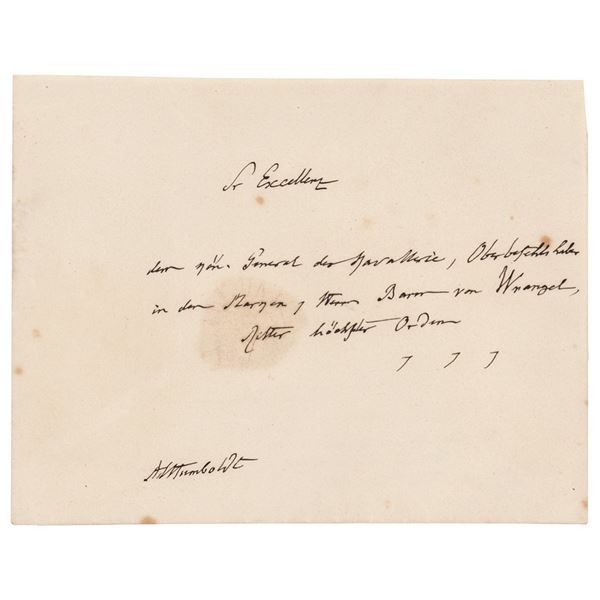 Sr Excellenz
dem kön. General der Kavallerie, Oberbefehlshaber
in den Marken, Herrn Baron von Wrangel,
Ritter höchster Orden
AlHumboldt